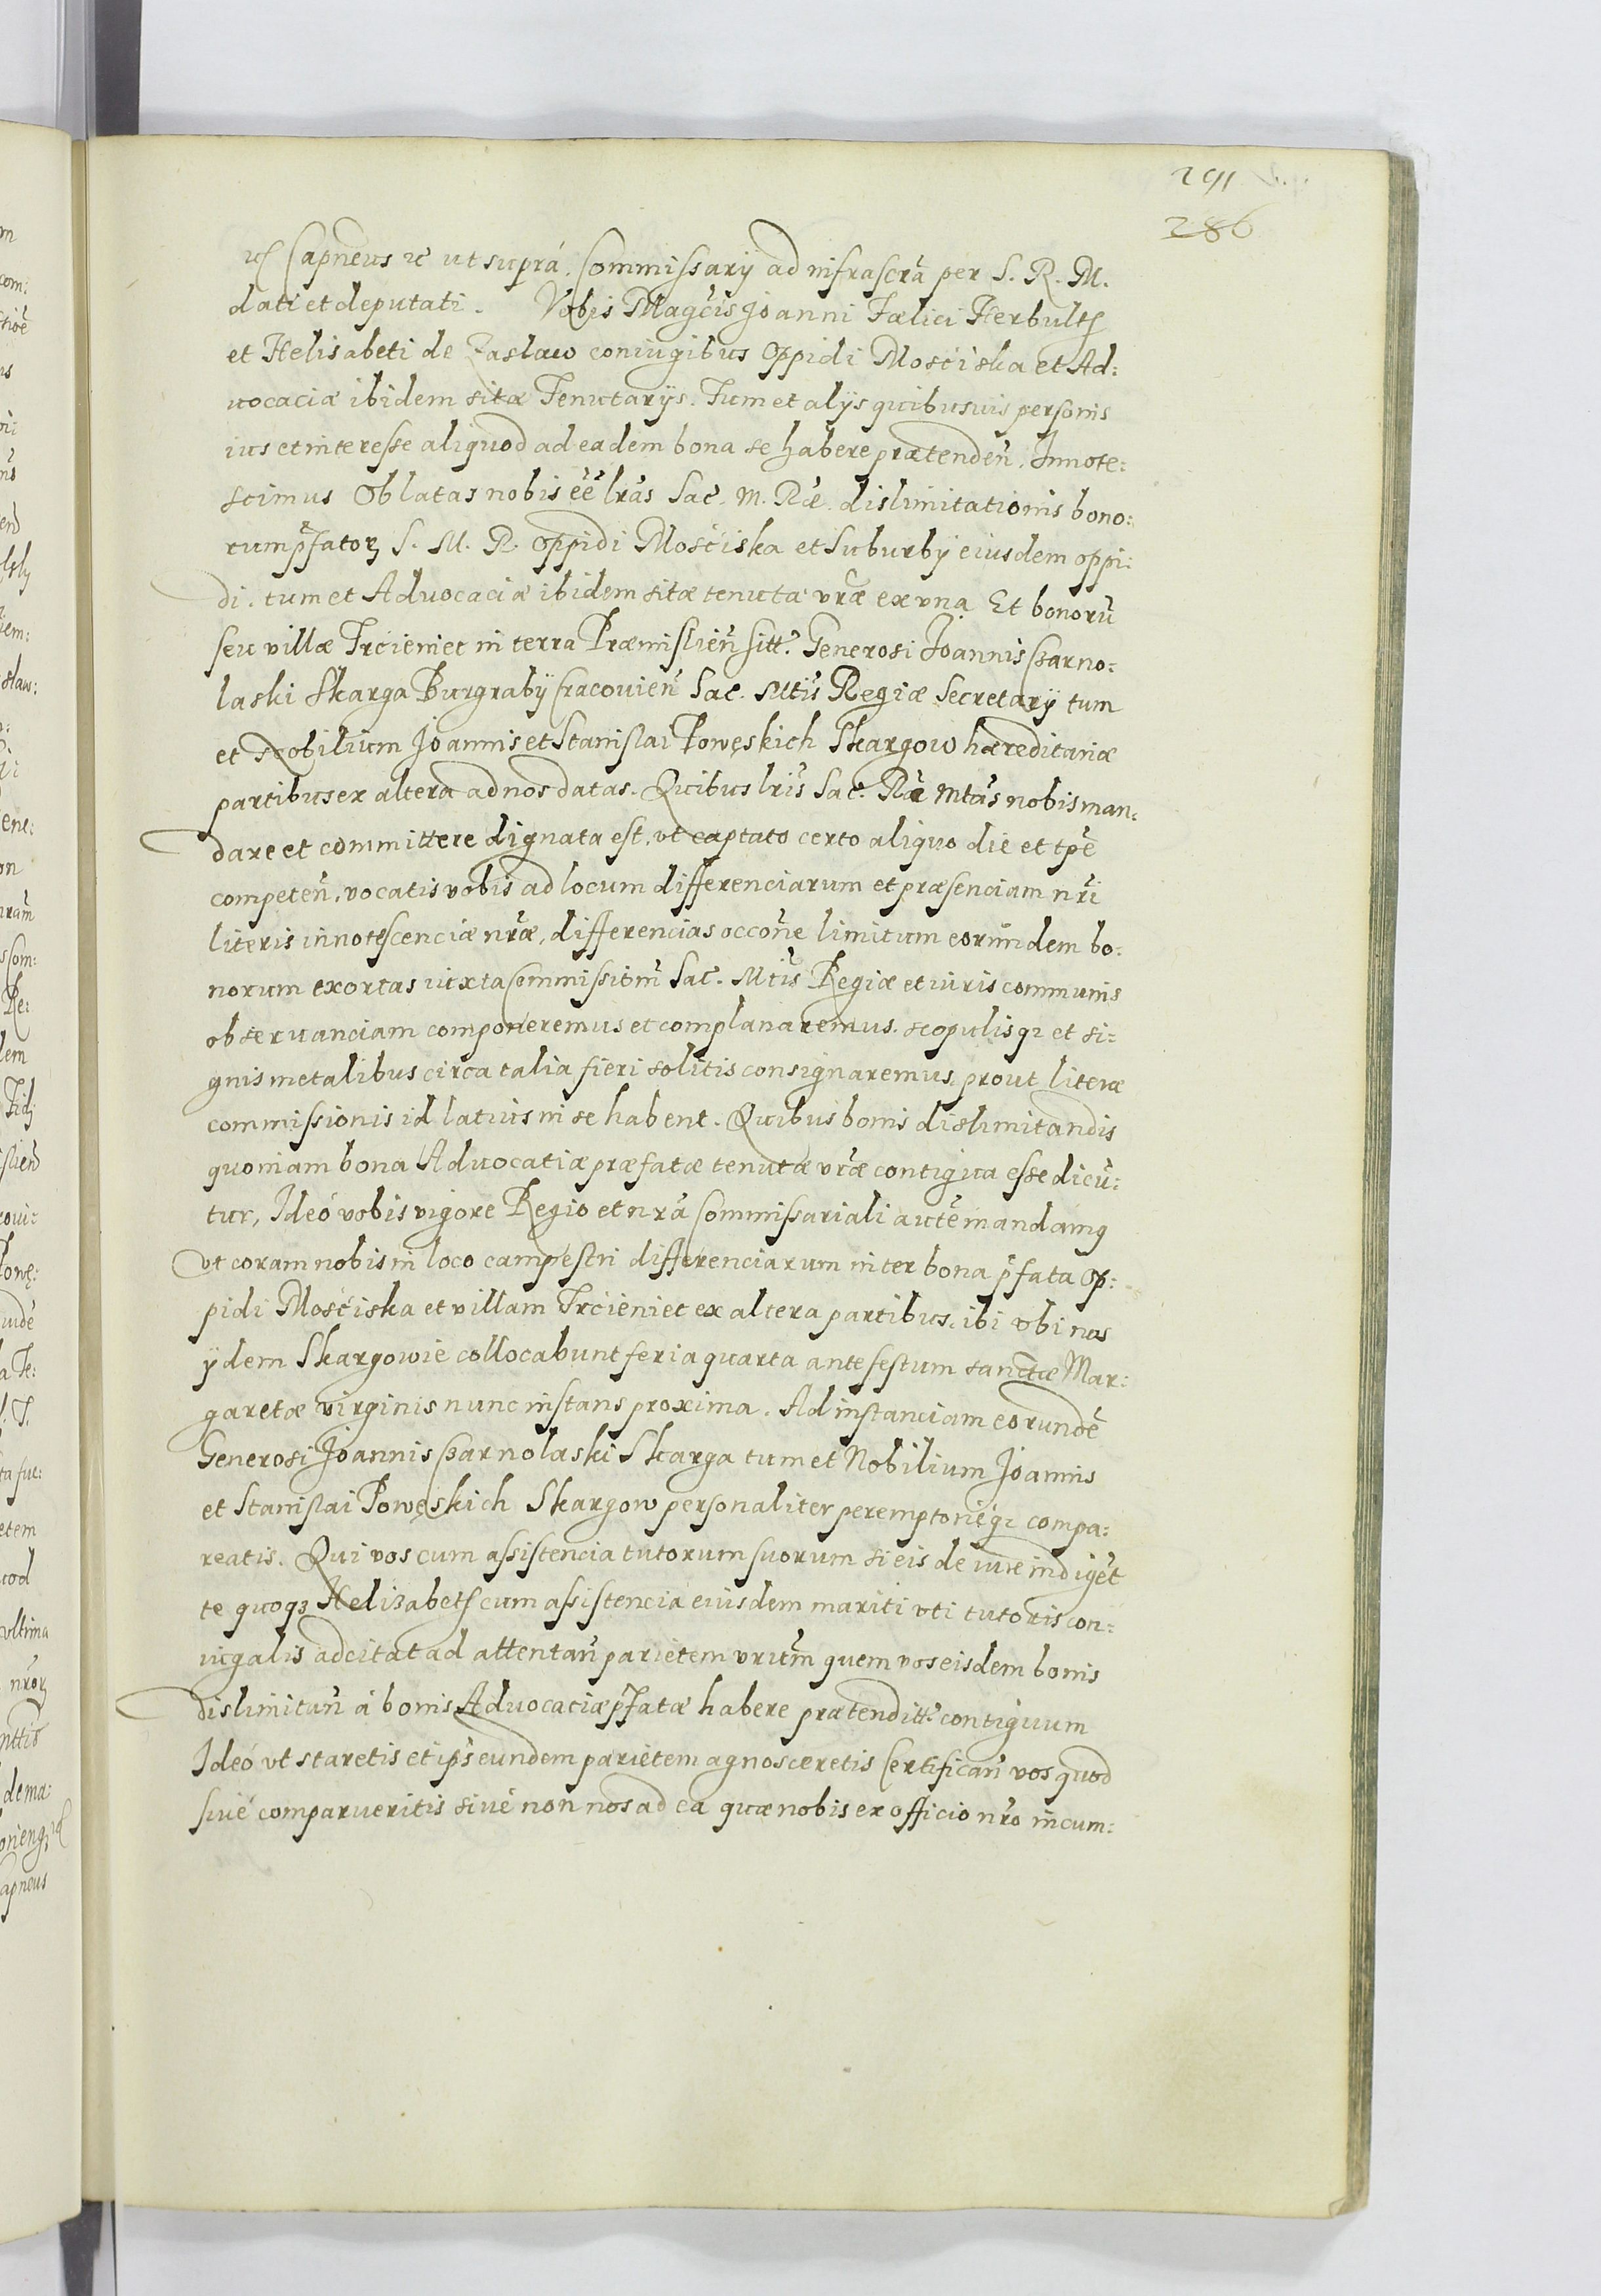 291
286
Capneus ut suprá. Commissarÿ ad infrascrã per S. R. M.
dati et deputati. Vobis Magc̃is Joanni Fælici Herbulth
et Helisabeti de Zaslaw coniugibus Oppidi Mosciska et Ad:
uocaciæ ibidem sitæ Tenutarÿs. Tum et alÿs quibusuis personis
ius et interesse aliquod ad eadem bona se habere prætendeñ. Innote:
scimus Oblatas nobis eẽ lr̃as Sac. M. Ræ. dislimitationis bono:
rum p̃fatorꝫ S. M. R. oppidi Mosciska et Suburbÿ eiusdem oppi:
di. tum et Aduocaciæ ibidem sitæ tenutæ vr̃æ ex vna Et bonorũ
seu villæ Trcieniec in terra Præmislień sitt. Generosi Joannis Czarno:
laski Skarga Burgrabÿ Cracouień Sac. Mtis Regiæ Secretarÿ tum
et Nobilium Joannis et Stanislai Powęskich Skargow hæreditariæ
partibus ex altera ad nos datas. Quibus lr̃is Sac. Ræ Mtas nobis man:
dare et committere dignata est, vt captato certo aliquo die et tp̃e
competeñ. vocatis vobis ad locum differenciarum et præsenciam nr̃i
literis innotescenciæ nr̃æ, differencias occoñe limitum eorundem bo:
norum exortas iuxta Commissioñm Sac. Mtis Regiæ et iuris communis
obseruanciam componeremus et complanaremus. scopulisqꝫ et si:
gnis metalibus circa talia fieri solitis consignaremus, prout literæ
commissionis id latius in se habent. Quibus bonis dislimitandis
quoniam bona Aduocatiæ præfatæ tenutæ vr̃æ contigua esse dicũ:
tur, Ideó vobis vigore Regio et nr̃a Commissariali auctẽ mandamꝰ
vt coram nobis in loco campestri differenciarum inter bona p̃fata Op:
pidi Mosciska et villam Trcieniec ex altera partibus, ibi vbi nos
ÿdem Skargowie collocabunt feria quarta ante festum sanctæ Mar:
garetæ virginis nunc instans proxima. Ad instanciam eorundẽ
Generosi Joannis Czarnolaski Skarga tum et Nobilium Joannis
et Stanislai Powęskich Skargow personaliter peremptorieqꝫ compa:
reatis. Qui vos cum assistencia tutorum suorum si eis de iure indigẽt
te quoqꝫ Helizabeth cum assistencia eiusdem mariti vti tutoris con:
iugalis adcitat ad attentañ parietem vrum̃ quem vos eisdem bonis
dislimituñ á bonis Aduocaciæ p̃fatæ habere prætenditt. contiguum
Ideó vt staretis et ips̃ eundem parietem agnosceretis Certificañ vos quod
siue comparueritis siue non nos ad ea quæ nobis ex officio nr̃o incum: